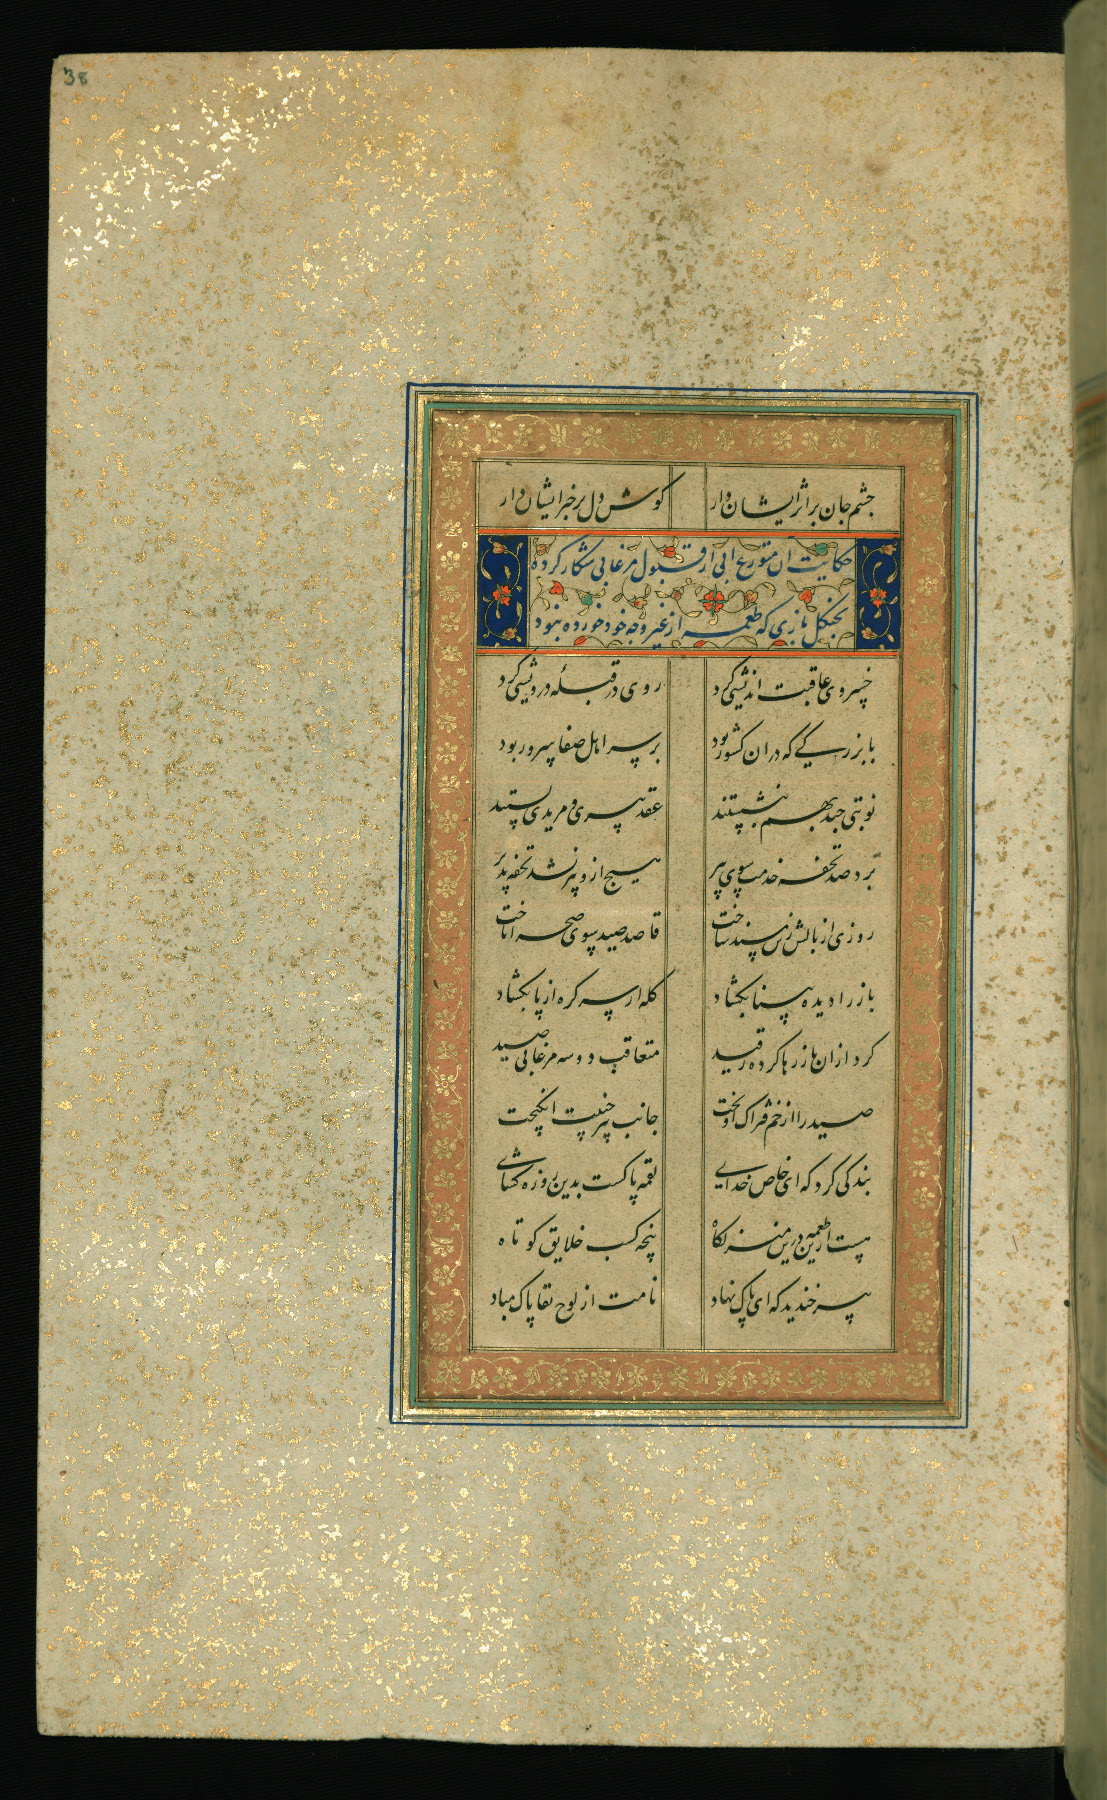 38
چشم جان بر اثر ایشان دار گوش دل بر خبر ایشان دار
حکایت آن متورع ابی از قبول مرغابی شکار کرده
بچنگل بازی که طعمه از غیر وجه خود خورده بود
خسروی عاقبت اندیشی کرد روی در قبلهٔ درویشی کرد
با بزرگی که در آن کشور بود بر سر اهل صفا سرور بود
نوبتی چند بهم بنشستند عقد پیری و مریدی بستند
برد صد تحفه خدمت سوی پیر هیچ ازو پیر نشد تحفه پذیر
روزی از بالش زین مسند ساخت قاصد صید سوی صحرا تاخت
باز را دیده بینا بگشاد کله از سر گره از پا بگشاد
کرد ازان باز رها کرده ز قید متعاقب دو سه مرغابی صید
صید را از خم فتراک آویخت جانب پیر جنیبت انگیخت
بندگی کرد که ای خاص خدای لقمه پاکست بدین روزه گشای
هست از طعمه‌ین درین منزلگاه پنجه کسب خلایق کوتاه
پیر خندید که ای پاک نهاد نامت از لوح بقا پاک مباد